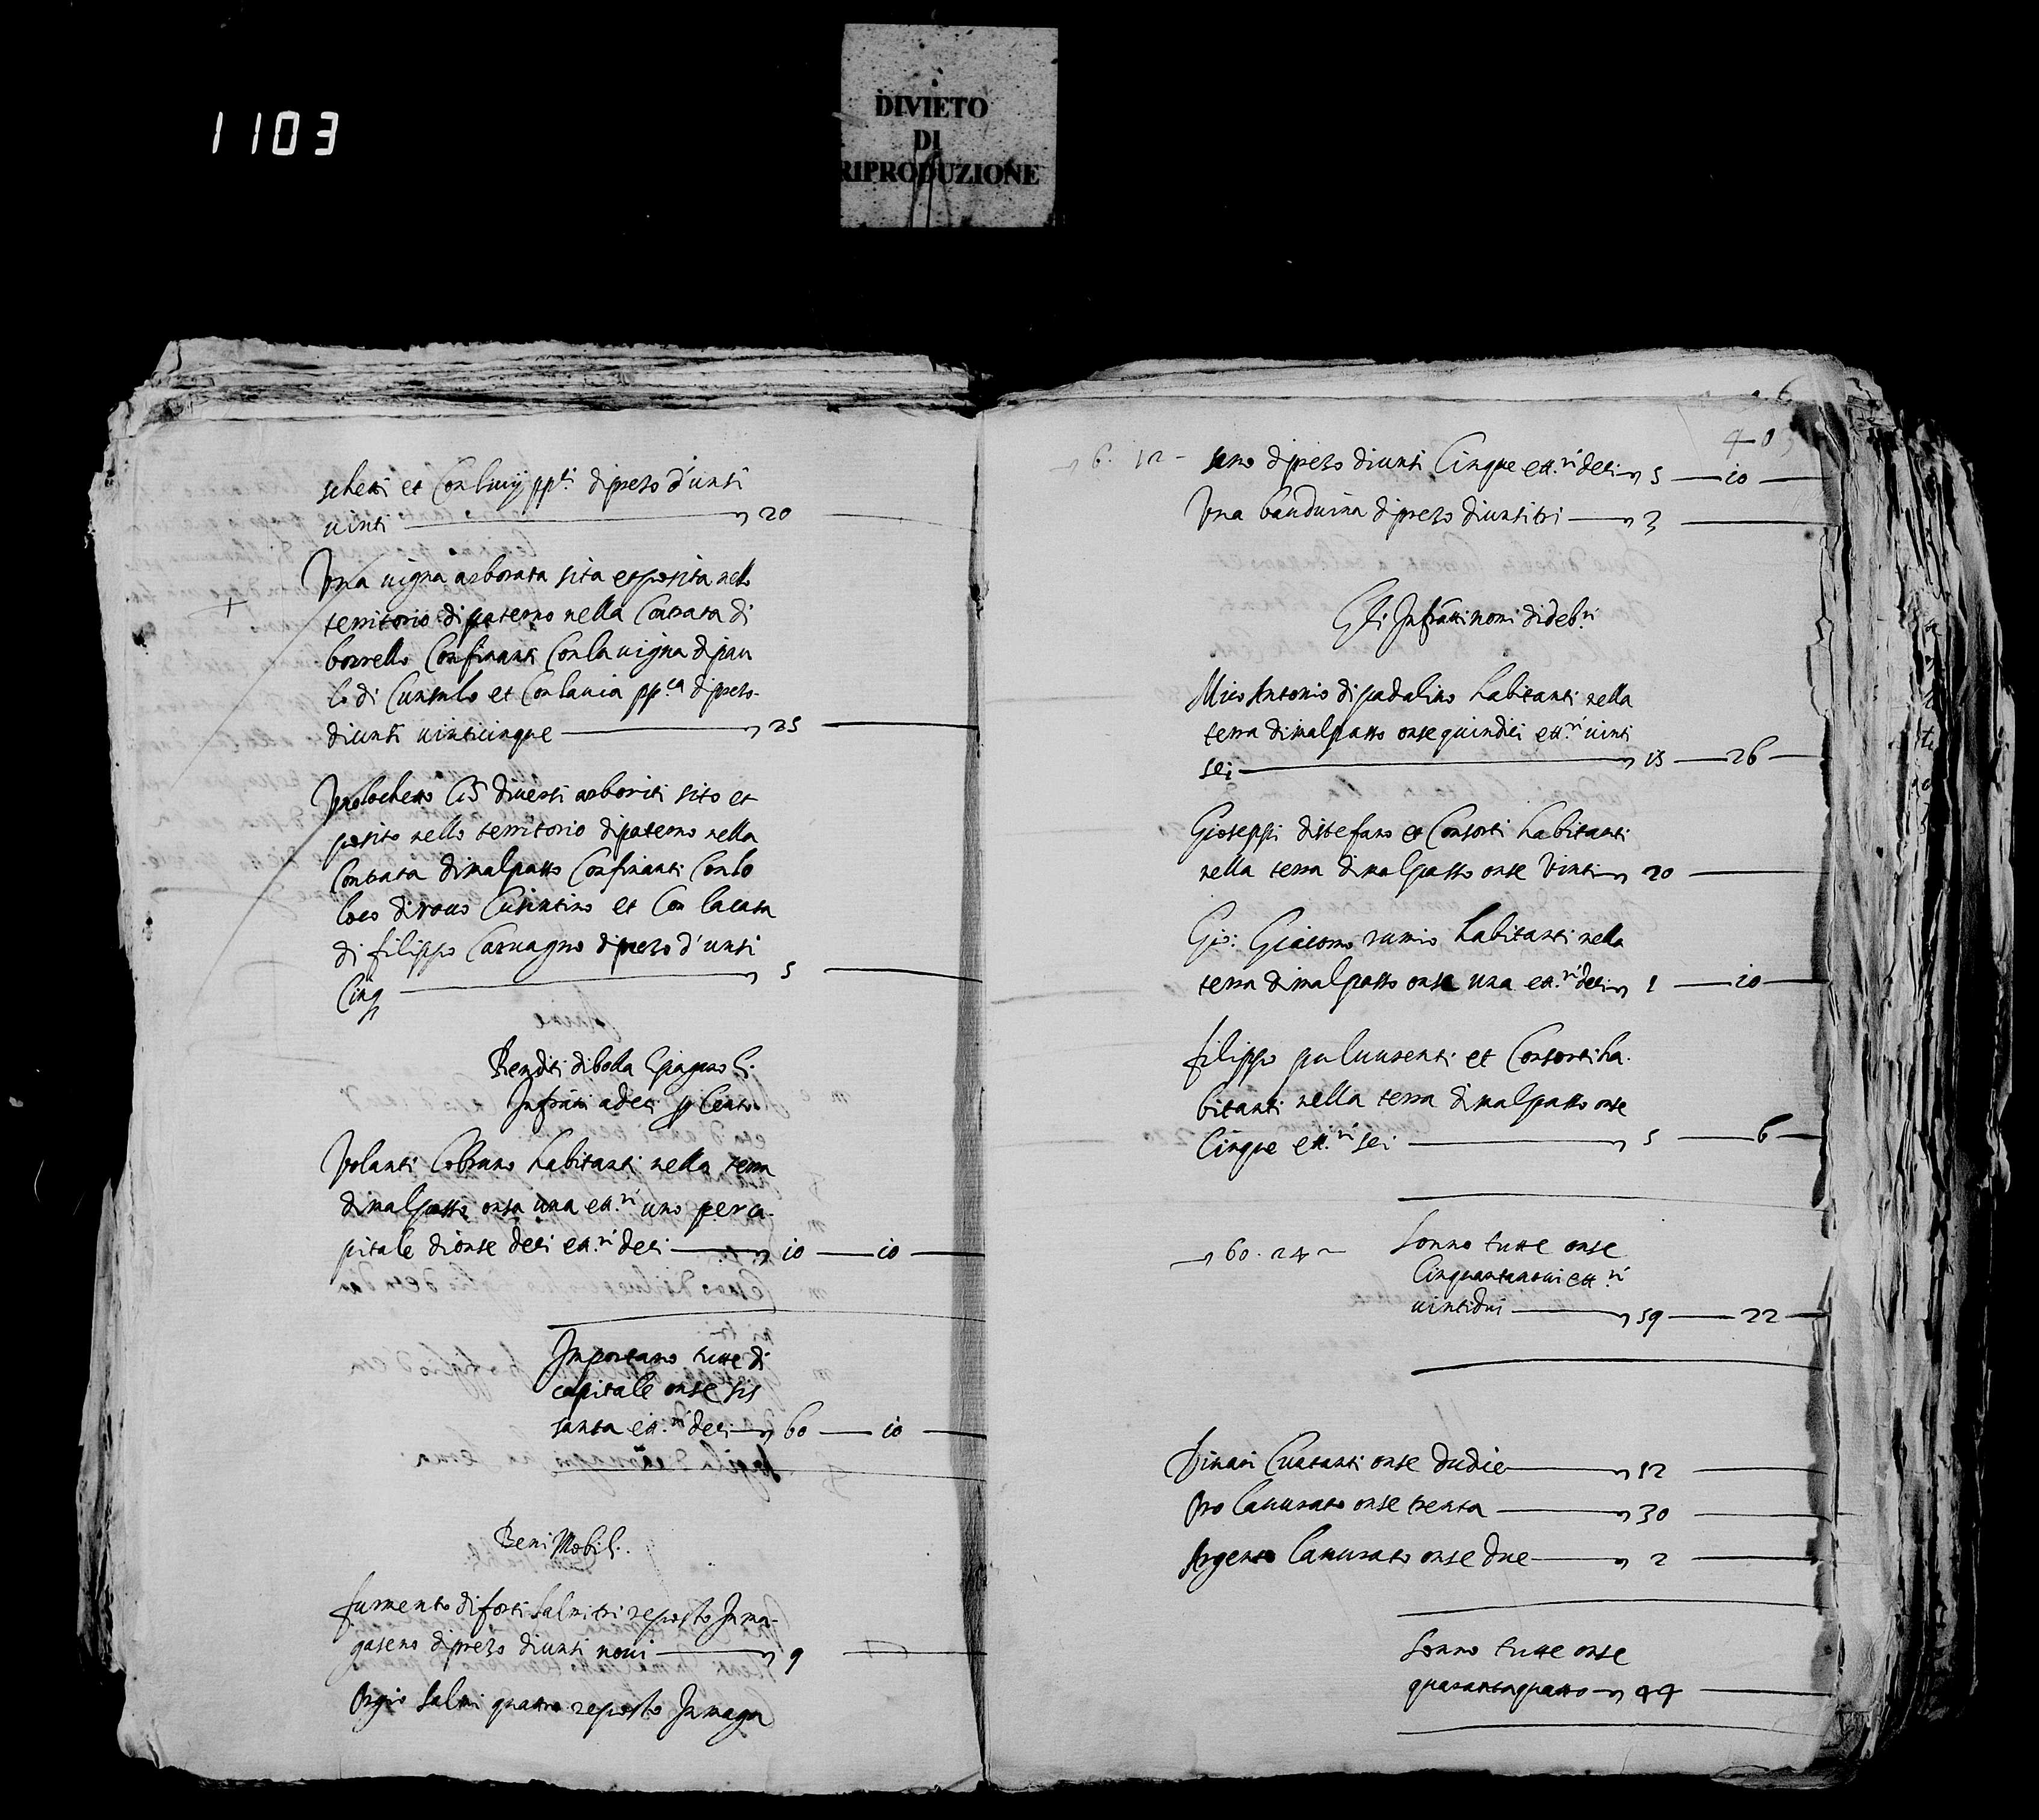 1103
DIVIETO
DI
RIPRODUZIONE
schetti et Con ppti di prezo d'unsi
vinti 20
Una vigna arborata sita et posita nello
territorio di paterno nella Contrata di
borrello Confinanti Con la vigna di pau
lo di et Con la via ppca di prezo
di unsi vinticinque 25
Uno lochetto Cō diversi arboriti sito et
posito nello territorio di paterno nella
Contrata di malpasso Confinanti Con lo
loco di Cusintino et Con la casa
di filippo Carvagno di prezo d'unsi
Cinq 5
Renditi di bolla
Infratti a deci p Cento
habitanti nella terra
di malpasso onsa una ett.rì uno per ca
pitale di onse deci ett.rì deci 10 10
Importano tutte di
capitale onse sis
santa ett.rì deci 60 10
Beni Mobili.
furmento di forti salmi tri reposto In ma
gaseno di prezo di unsi novi 9
Orgio salmi quattro reposto In maga
6
40
6. 12 seno di prezo di unsi Cinque ett.rì deci 5 10
Una bauduina di prezo di unsi tri 3
Gli Infratti nomi di deb.ri
Mico Antonio di padalino habitanti nella
terra di malpasso onse quindici ett.rì vinti
sei 15 26
Gioseppi distefano et Consorti habitanti
nella terra di malpasso onse Vinti 20
Gio: Giacomo rumio habitanti nella
terra di malpasso onsa una ett.rì deci 1 10
filippo pulvirenti et Consorti ha
bitanti nella terra di malpasso onse
Cinque ett.rì sei 5 6
60. 24 Sonno tutte onse
Cinquantanovi ett.rì
vintidui 59 22
Dinari Cuntanti onse dudici 12
Oro lavurato onse trenta 30
Argento lavurato onse due 2
Sonno tutte onse
quarantaquattro 44